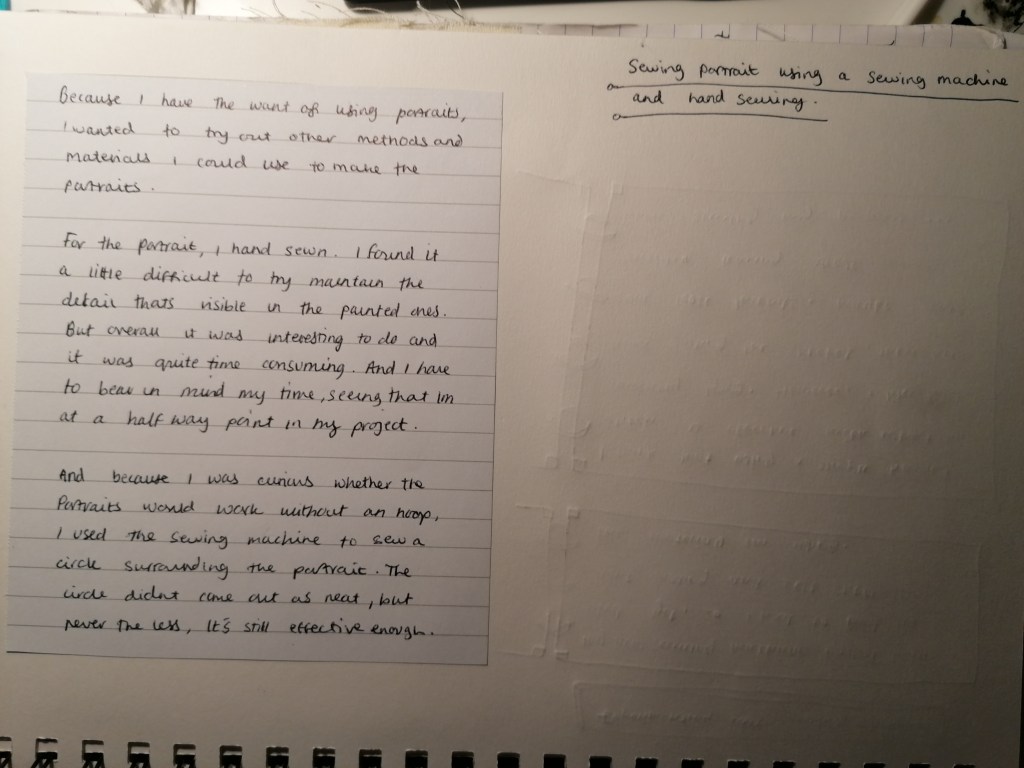 Sewing portrait using a sewing machine
and hand sewing.
Because I have the want of using portraits,
I wanted to try out other methods and
materials I could use to make the
portraits.
For the portrait, I hand sewn. I found it
a little difficult to try maintain the
detail thats visible in the painted ones.
But overall it was interesting to do and
it was quite time consuming. And I have
to bear in mind my time, seeing that im
at a half way point in my project.
And because I was curious whether the
Portraits would work without an hoop,
I used the sewing machine to sew a
circle surrounding the portrait. The
circle didnt come out as neat, but
never the less, It's still effective enough.